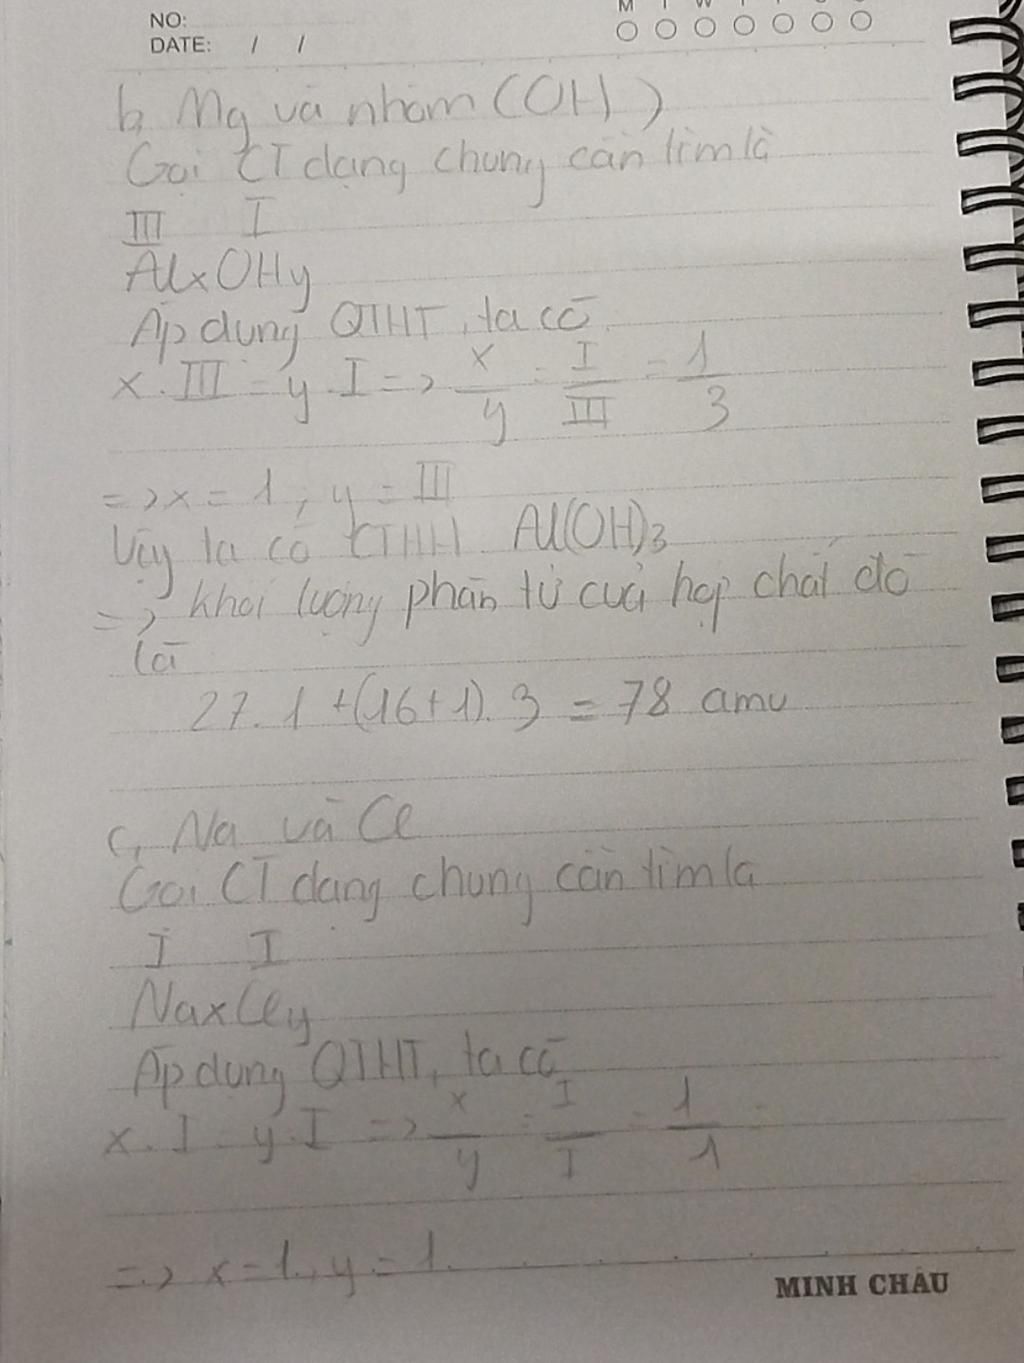 NO:
DATE: / /
M T W T F S S
b, Mg và nhóm (OH)
Gọi CT dạng chung cần tìm là
III I
AlxOHy
Áp dụng QTHT, ta có
x . III = y . I => x/y = I/III = 1/3
=> x = 1, y = III
Vậy ta có CTHH Al(OH)3
=> Khối lượng phân tử của hợp chất đó
là
27. 1 + (16+1). 3 = 78 amu
c, Na và Cl
Gọi CT dạng chung cần tìm là
I I
NaxCly
Áp dụng QTHT, ta có
x . I = y . I => x/y = I/I = 1/1
=> x = 1, y = 1.
MINH CHÂU